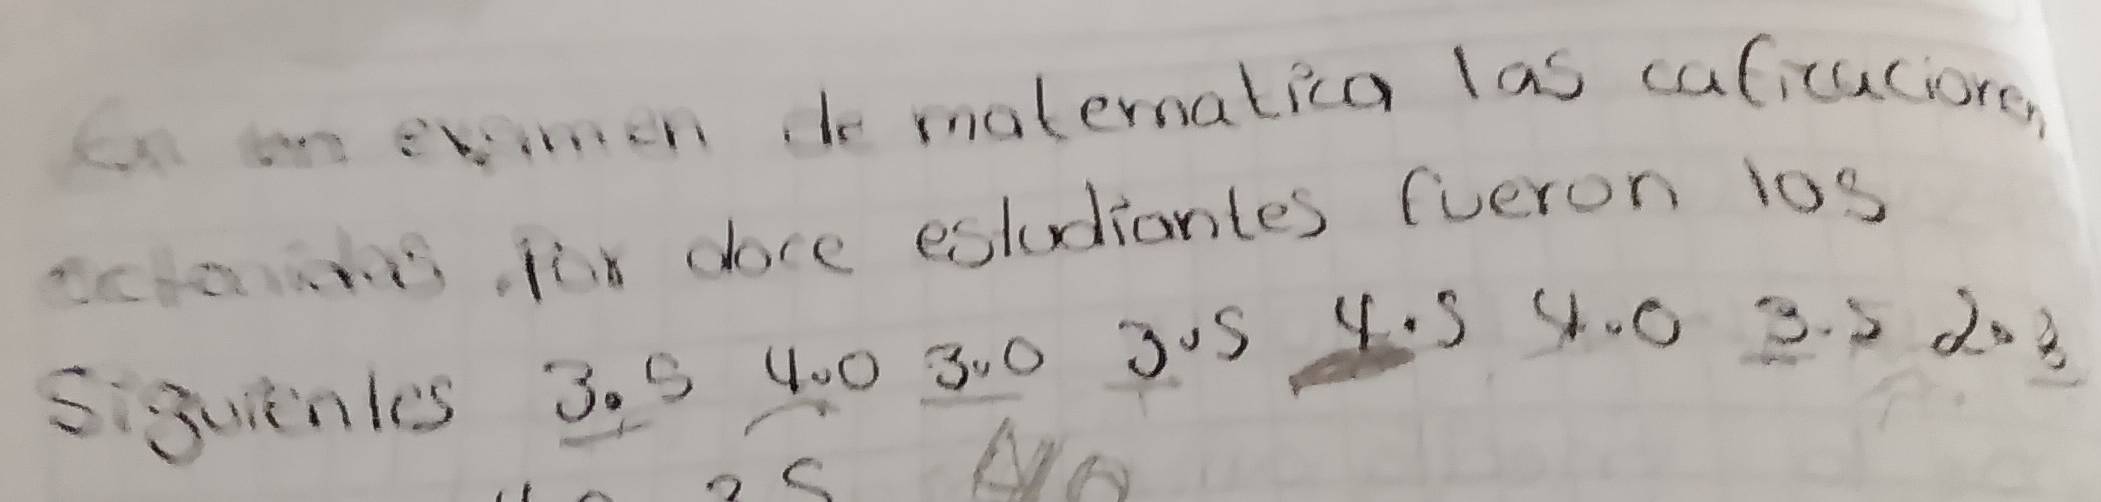 En un examen de matematica las caficaciones
por doce estudiantes fueron los
Siguientes 3.5 4.0 3.0 3.5 4.5 4.0 3.5 2.3